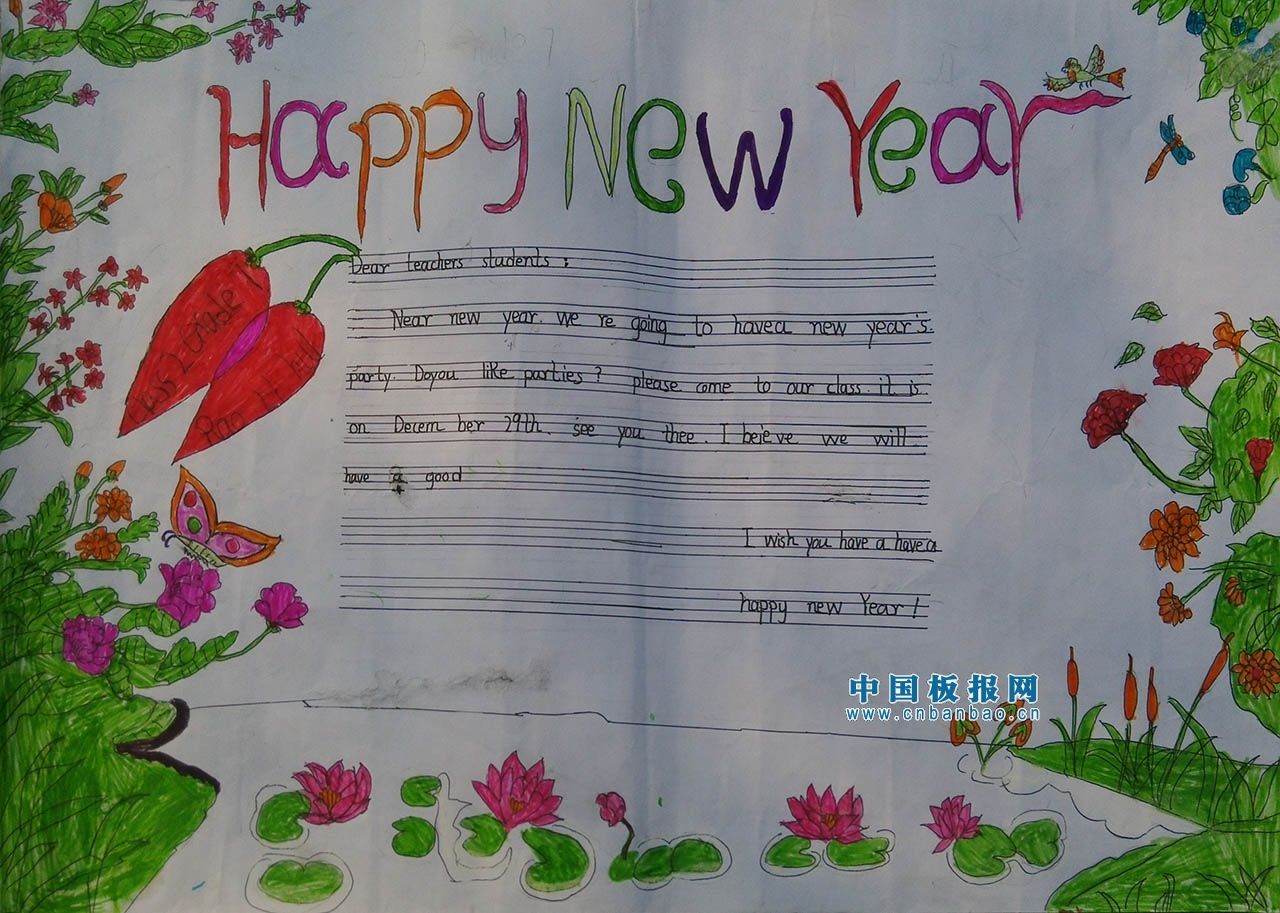 Happy New Year
Dear teachers students :
Near new year. we re going to havea new year's.
party. Doyou like parties ? please come to our class. it is
on Decem ber 29th. see you thee. I beieve we will
have a good
I wish you have a havea
happy new Year !
Class 2 Grade 1
中国板报网
www.cnbanbao.cn